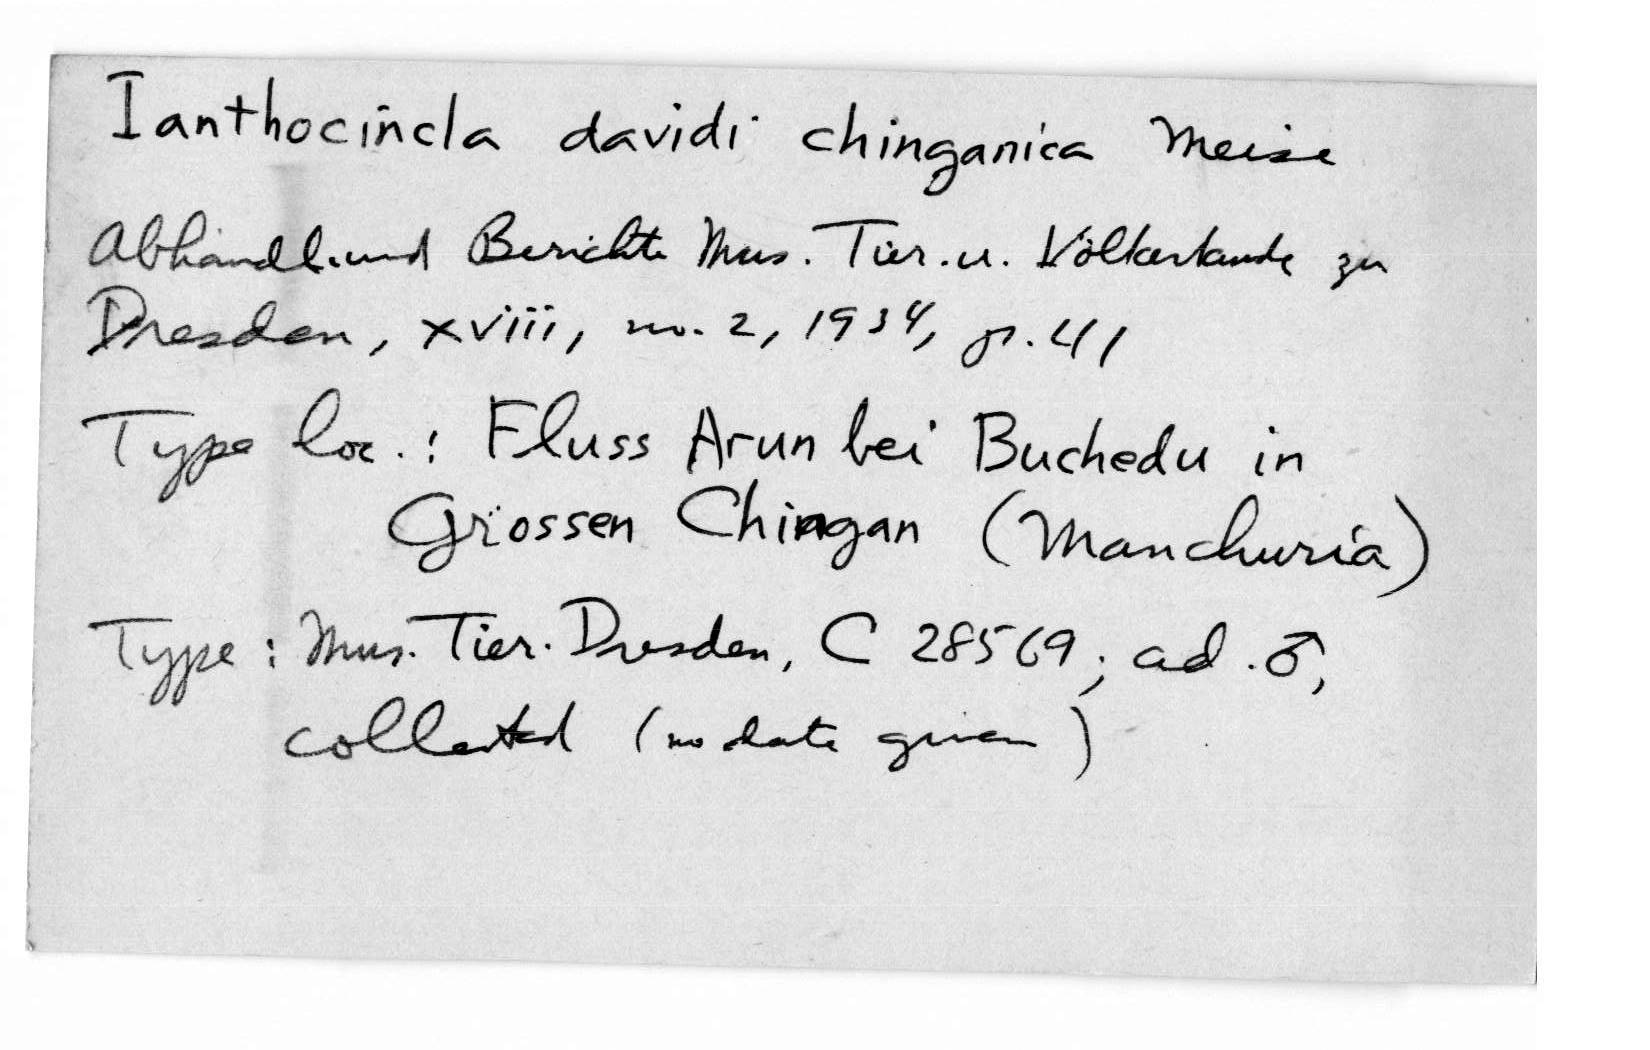 Ianthocincla davidi chinganica Meise
Abhandl. und Berichte Mus. Tier. u. Völkerkunde zu
Dresden, xviii, no. 2, 1934, p. 41
Type loc.: Fluss Arun bei Buchedu in
Grossen Chingan (Manchuria)
Type: Mus. Tier. Dresden, C 28569; ad. ♂,
collected (no date given)